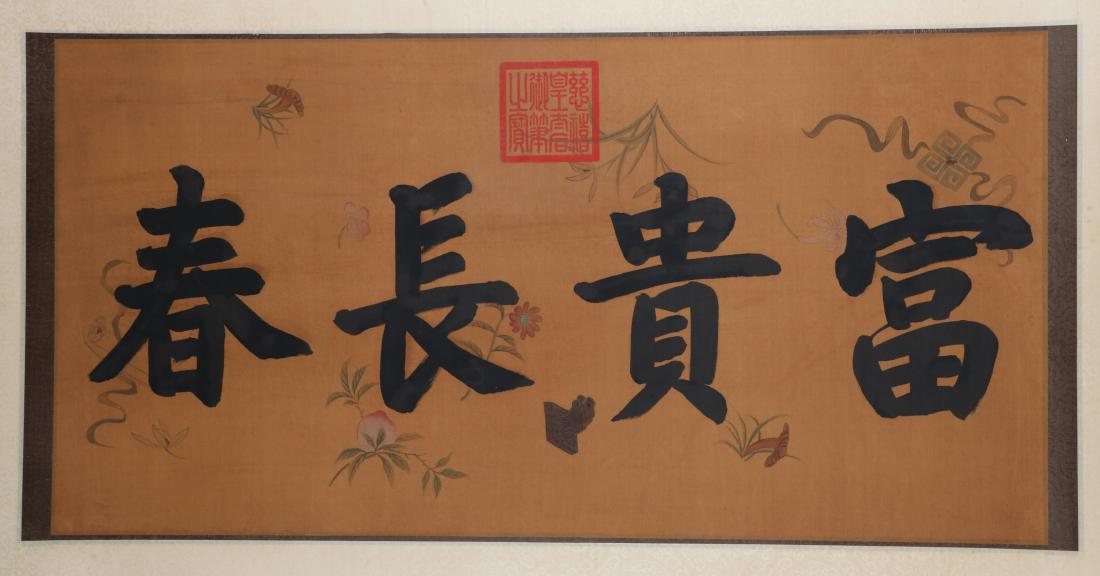 富貴長春
慈禧皇太后御筆之寶